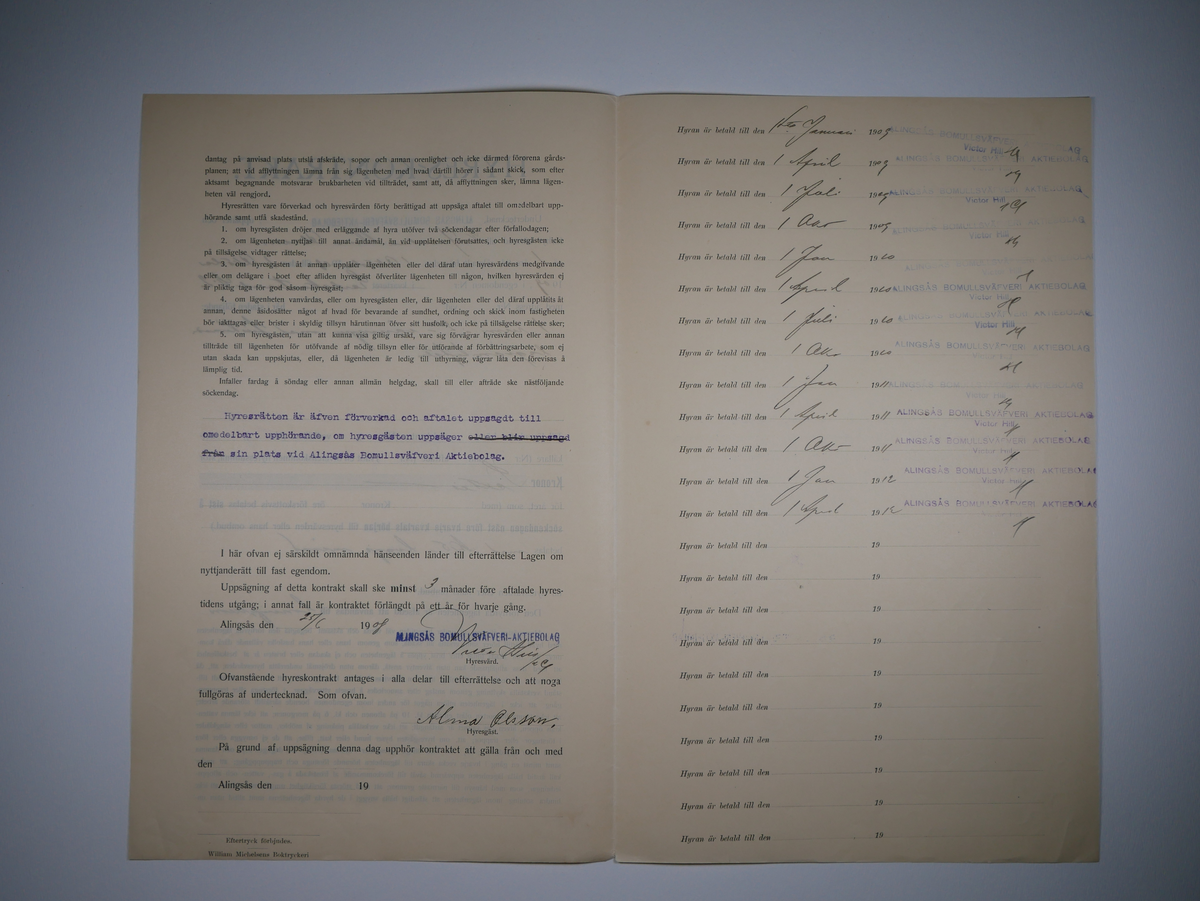 dantag på anvisad plats utslå afskräde, sopor och annan orenlighet och icke därmed förorena gårds-
planen; att vid afflyttningen lämna från sig lägenheten med hvad därtill hörer i sådant skick, som efter
aktsamt begagnande motsvarar brukbarheten vid tillträdet, samt att, då afflyttningen sker, lämna lägen-
heten väl rengjord.
Hyresrätten vare förverkad och hyresvärden förty berättigad att uppsäga aftalet till omedelbart upp-
hörande samt utfå skadestånd.
1. om hyresgästen dröjer med erläggande af hyra utöfver två söckendagar efter förfallodagen;
2. om lägenheten nyttjas till annat ändamål, än vid upplåtelsen förutsattes, och hyresgästen icke
på tillsägelse vidtager rättelse;
3. om hyresgästen åt annan upplåter lägenheten eller del däraf utan hyresvärdens medgifvande
eller om delägare i boet efter afliden hyresgäst öfverlåter lägenheten till någon, hvilken hyresvärden ej
är pliktig taga för god såsom hyresgäst;
4. om lägenheten vanvårdas, eller om hyresgästen eller, där lägenheten eller del däraf upplåtits åt
annan, denne åsidosätter något af hvad för bevarande af sundhet, ordning och skick inom fastigheten
bör iakttagas eller brister i skyldig tillsyn härutinnan öfver sitt husfolk, och icke på tillsägelse rättelse sker;
5. om hyresgästen, utan att kunna visa giltig ursäkt, vare sig förvägrar hyresvärden eller annan
tillträde till lägenheten för utöfvande af nödig tillsyn eller för utförande af förbättringsarbete, som ej
utan skada kan uppskjutas, eller, då lägenheten är ledig till uthyrning, vägrar låta den förevisas å
lämplig tid.
Infaller fardag å söndag eller annan allmän helgdag, skall till eller afträde ske nästföljande
söckendag.
Hyresrätten är äfven förverkad och aftalet uppsagdt till
omedelbart upphörande, om hyresgästen uppsäger eller blir uppsagd
från sin plats vid Alingsås Bomullsväfveri Aktiebolag.
I här ofvan ej särskildt omnämnda hänseenden länder till efterrättelse Lagen om
nyttjanderätt till fast egendom.
Uppsägning af detta kontrakt skall ske minst 3 månader före aftalade hyres-
tidens utgång; i annat fall är kontraktet förlängdt på ett år för hvarje gång.
Alingsås den 25/6 1908
ALINGSÅS BOMULLSVÄFVERI-AKTIEBOLAG
Hyresvärd.
Ofvanstående hyreskontrakt antages i alla delar till efterrättelse och att noga
fullgöras af undertecknad. Som ofvan.
Alma Olsson.
Hyresgäst.
På grund af uppsägning denna dag upphör kontraktet att gälla från och med
den
Alingsås den 19
Eftertryck förbjudes.
William Michelsens Boktryckeri
Hyran är betald till den Januari 1909 ALINGSÅS BOMULLSVÄFVERI
Victor Hill
Hyran är betald till den 1 April 1909 ALINGSÅS BOMULLSVÄFVERI AKTIEBOLAG
Hyran är betald till den 1 Juli 1909 ALINGSÅS BOMULLSVÄFVERI AKTIEBOLAG
Victor Hill
Hyran är betald till den 1 1909
Hyran är betald till den 1 Jan 1910
Hyran är betald till den 1 April 1910 ALINGSÅS BOMULLSVÄFVERI AKTIEBOLAG
Hyran är betald till den 1 Juli 1910
Victor Hill
Hyran är betald till den 1 1910 ALINGSÅS BOMULLSVÄFVERI AKTIEBOLAG
Hyran är betald till den 1 Jan 1911
Hyran är betald till den 1 April 1911 ALINGSÅS BOMULLSVÄFVERI AKTIEBOLAG
Victor Hill
Hyran är betald till den 1 1911 ALINGSÅS BOMULLSVÄFVERI AKTIEBOLAG
Hyran är betald till den 1 Jan 1912 ALINGSÅS BOMULLSVÄFVERI AKTIEBOLAG
Victor Hill
Hyran är betald till den 1 April 1912 ALINGSÅS BOMULLSVÄFVERI AKTIEBOLAG
Hyran är betald till den 19
Hyran är betald till den 19
Hyran är betald till den 19
Hyran är betald till den 19
Hyran är betald till den 19
Hyran är betald till den 19
Hyran är betald till den 19
Hyran är betald till den 19
Hyran är betald till den 19
Hyran är betald till den 19